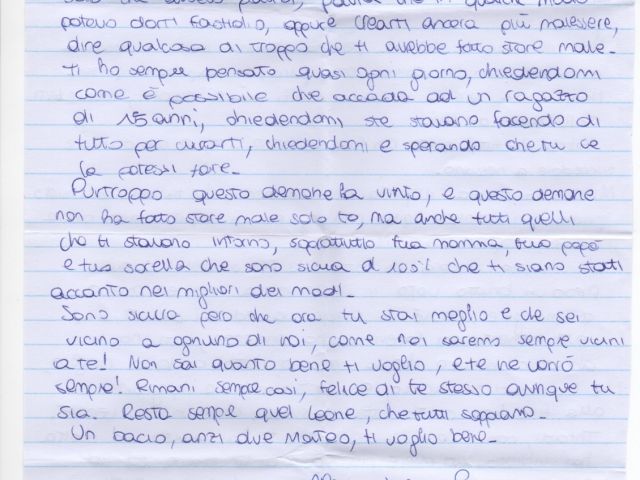 potevo darti fastidio, oppure crearti ancora più malessere,
dire qualcosa di troppo che ti avrebbe fatto stare male.
ti ho sempre pensato quasi ogni giorno, chiedendomi
come è possibile che accada ad un ragazzo
di 15 anni, chiedendomi se stavano facendo di
tutto per curarti, chiedendomi e sperando che tu ce
la potessi fare.
Purtroppo questo demone ha vinto, e questo demone
non ha fatto stare male solo te, ma anche tutti quelli
che ti stavano intorno, soprattutto tua mamma, tuo papà
e tua sorella che sono sicura al 100% che ti siano stati
accanto nei migliori dei modi.
Sono sicura però che ora tu stai meglio e che sei
vicino a ognuno di noi, come noi saremo sempre vicini
a te! Non sai quanto bene ti voglio, e te ne vorrò
sempre! Rimani sempre così, felice di te stesso ovunque tu
sia. Resta sempre quel leone, che tutti sappiamo.
Un bacio, anzi due Matteo, ti voglio bene.